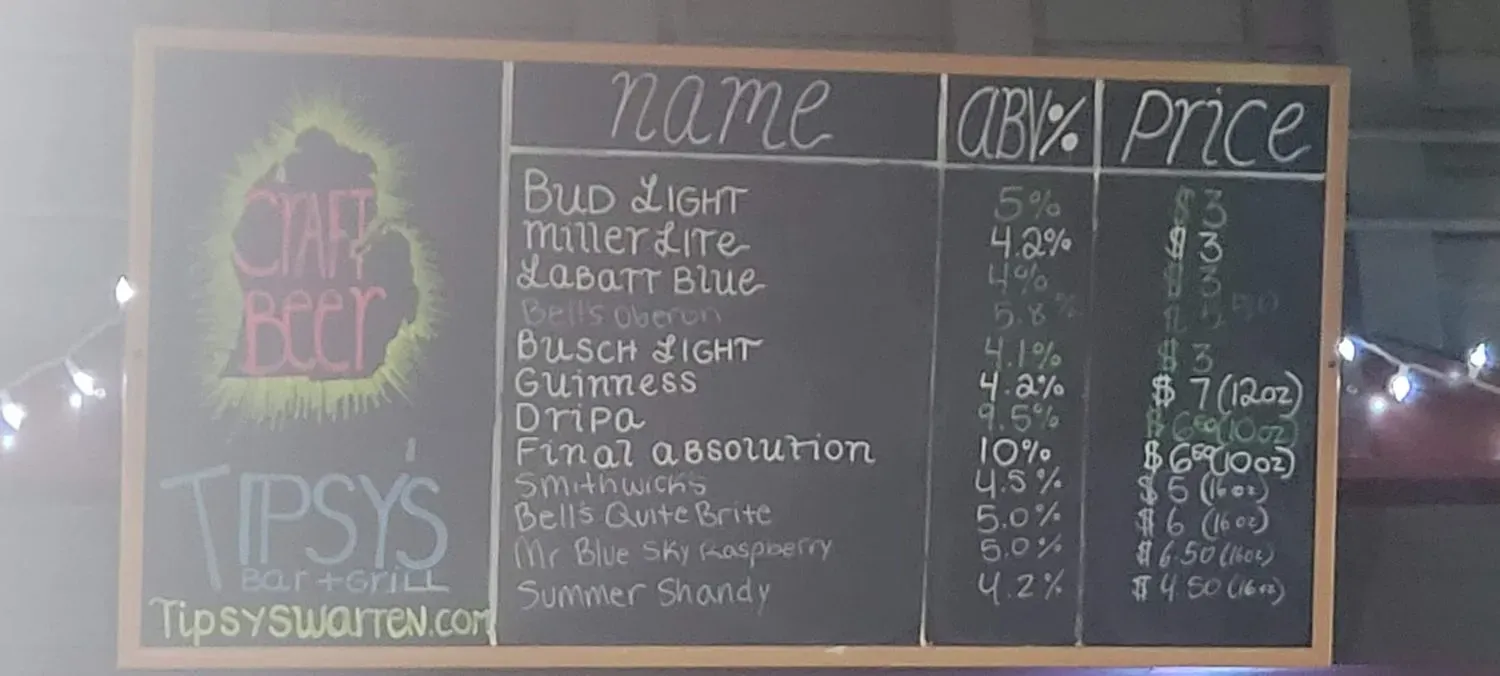 CRAFT
BEER
TIPSY'S
Bar + GriLL
TipsySWarren.com
name ABV% Price
BUD LIGHT 5% $3
Miller LITe 4.2% $3
LABATT Blue 4% $3
Bell's Oberon 5.8% $5.50
BUSCH LIGHT 4.1% $3
Guinness 4.2% $7 (12oz)
Dripa 9.5% $6.50 (10oz)
Final absolution 10% $6.50 (10oz)
Smithwicks 4.5% $5 (16oz)
Bell's Quite Brite 5.0% $6 (16oz)
Mr Blue Sky Raspberry 5.0% $6.50 (16oz)
Summer Shandy 4.2% $4.50 (16oz)